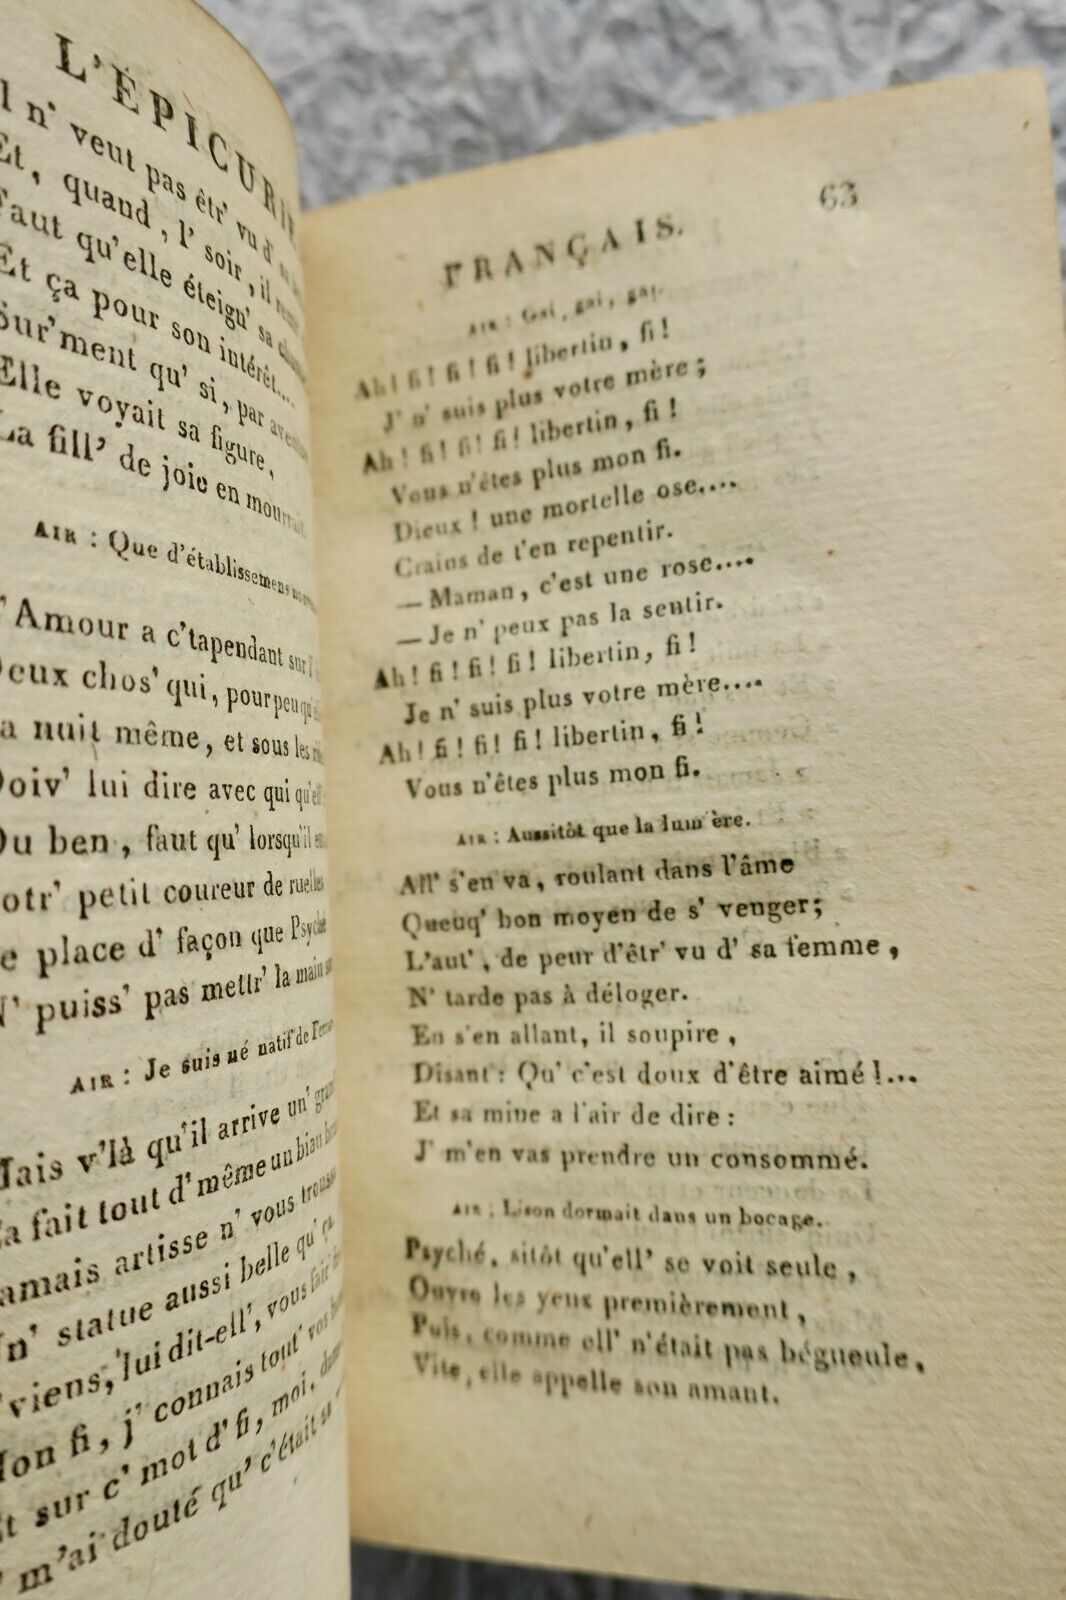 L'ÉPICURIEN
l n' veut pas êtr' vu d'
Et, quand, l' soir, il
Faut qu'elle éteign' sa
Et ça pour son intérêt....
Sur'ment qu' si, par
Elle voyait sa figure,
La fill' de joie en
AIR : Que d'établissemens
'Amour a c'tapendant sur
Deux chos' qui, pour peu
a nuit même, et sous les
Doiv' lui dire avec qui
Ou ben, faut qu' lorsqu'il
otr' petit coureur de ruelles
e place d' façon que Psyché
N' puiss' pas mettr' la main
AIR : Je suis né natif de
Mais v'là qu'il arrive un'
a fait tout d' même un biau
amais artisse n' vous
n' statue aussi belle qu' ça
viens, lui dit-ell', vous
Mon fi, j' connais tout' vos
Et sur c' mot d' fi, moi,
' m'ai douté qu' c'était sa
63
FRANÇAIS.
AIR : Gai, gai, gai,
Ah! fi! fi! fi! libertin, fi!
J' n' suis plus votre mère;
Ah! fi! fi! fi! libertin, fi!
Vous n'êtes plus mon fi.
Dieux! une mortelle ose....
Crains de t'en repentir.
— Maman, c'est une rose....
— Je n' peux pas la sentir.
Ah! fi! fi! fi! libertin, fi!
Je n' suis plus votre mère....
Ah! fi! fi! fi! libertin, fi!
Vous n'êtes plus mon fi.
AIR : Aussitôt que la lum ère.
All' s'en va, roulant dans l'âme
Queuq' bon moyen de s' venger;
L'aut', de peur d'êtr' vu d' sa femme,
N' tarde pas à déloger.
En s'en allant, il soupire,
Disant : Qu' c'est doux d'être aimé!...
Et sa mine a l'air de dire :
J' m'en vas prendre un consommé.
AIR : Lison dormait dans un bocage.
Psyché, sitôt qu'ell' se voit seule,
Ouvre les yeux premièrement,
Puis, comme ell' n'était pas bégueule,
Vite, elle appelle son amant.